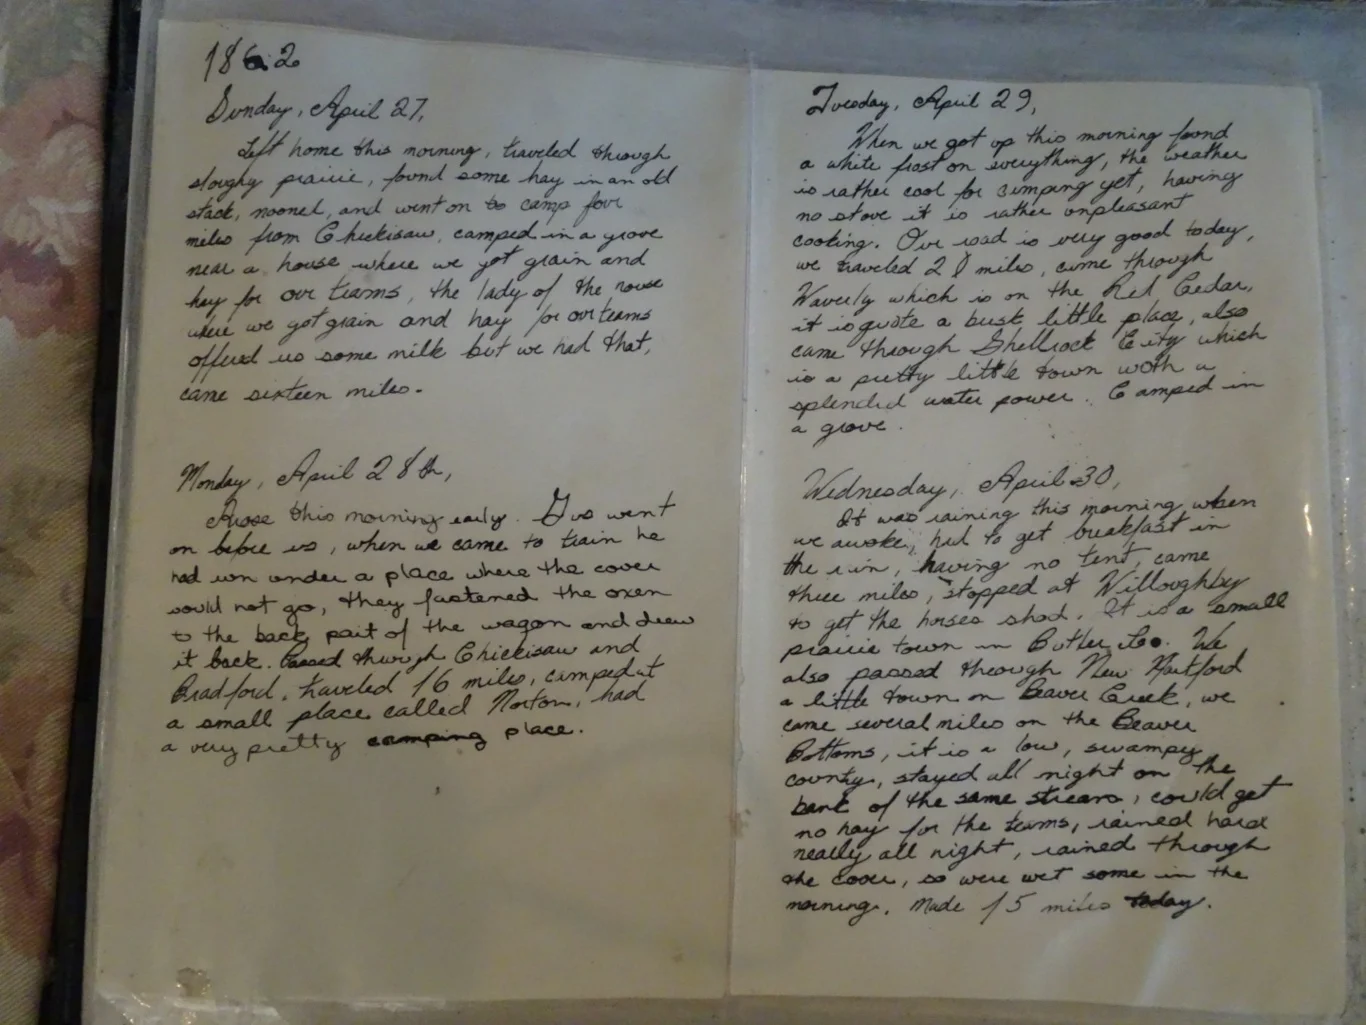 1862
Sunday, April 27,
Left home this morning, traveled through
sloughy prairie, found some hay in an old
stack, nooned, and went on to camp four
miles from Chickisaw, camped in a grove
near a house where we got grain and
hay for our teams, the lady of the house
where we got grain and hay for our teams
offered us some milk but we had that,
came sixteen miles.
Monday, April 28th,
Arose this morning early. Gus went
on before us, when we came to train he
had run under a place where the cover
would not go, they fastened the oxen
to the back part of the wagon and drew
it back. Passed through Chickisaw and
Bradford, traveled 16 miles, camped at
a small place called Norton, had
a very pretty camping place.
Tuesday, April 29,
When we got up this morning found
a white frost on everything, the weather
is rather cool for camping yet, having
no stove it is rather unpleasant
cooking. Our road is very good today,
we traveled 20 miles, came through
Waverly which is on the Red Cedar,
it is quite a busk little place, also
came through Shellrock City which
is a pretty little town with a
splendid water power. Camped in
a grove.
Wednesday, April 30,
It was raining this morning when
we awoke, had to get breakfast in
the rain, having no tent, came
three miles, stopped at Willoughby
to get the horses shod. It is a small
prairie town in Butler Co. We
also passed through New Hartford
a little town on Beaver Creek, we
came several miles on the Beaver
Bottoms, it is a low, swampy
county, stayed all night on the
bank of the same stream, could get
no hay for the teams, rained hard
nearly all night, rained through
the cover, so were wet some in the
morning. Made 15 miles today.